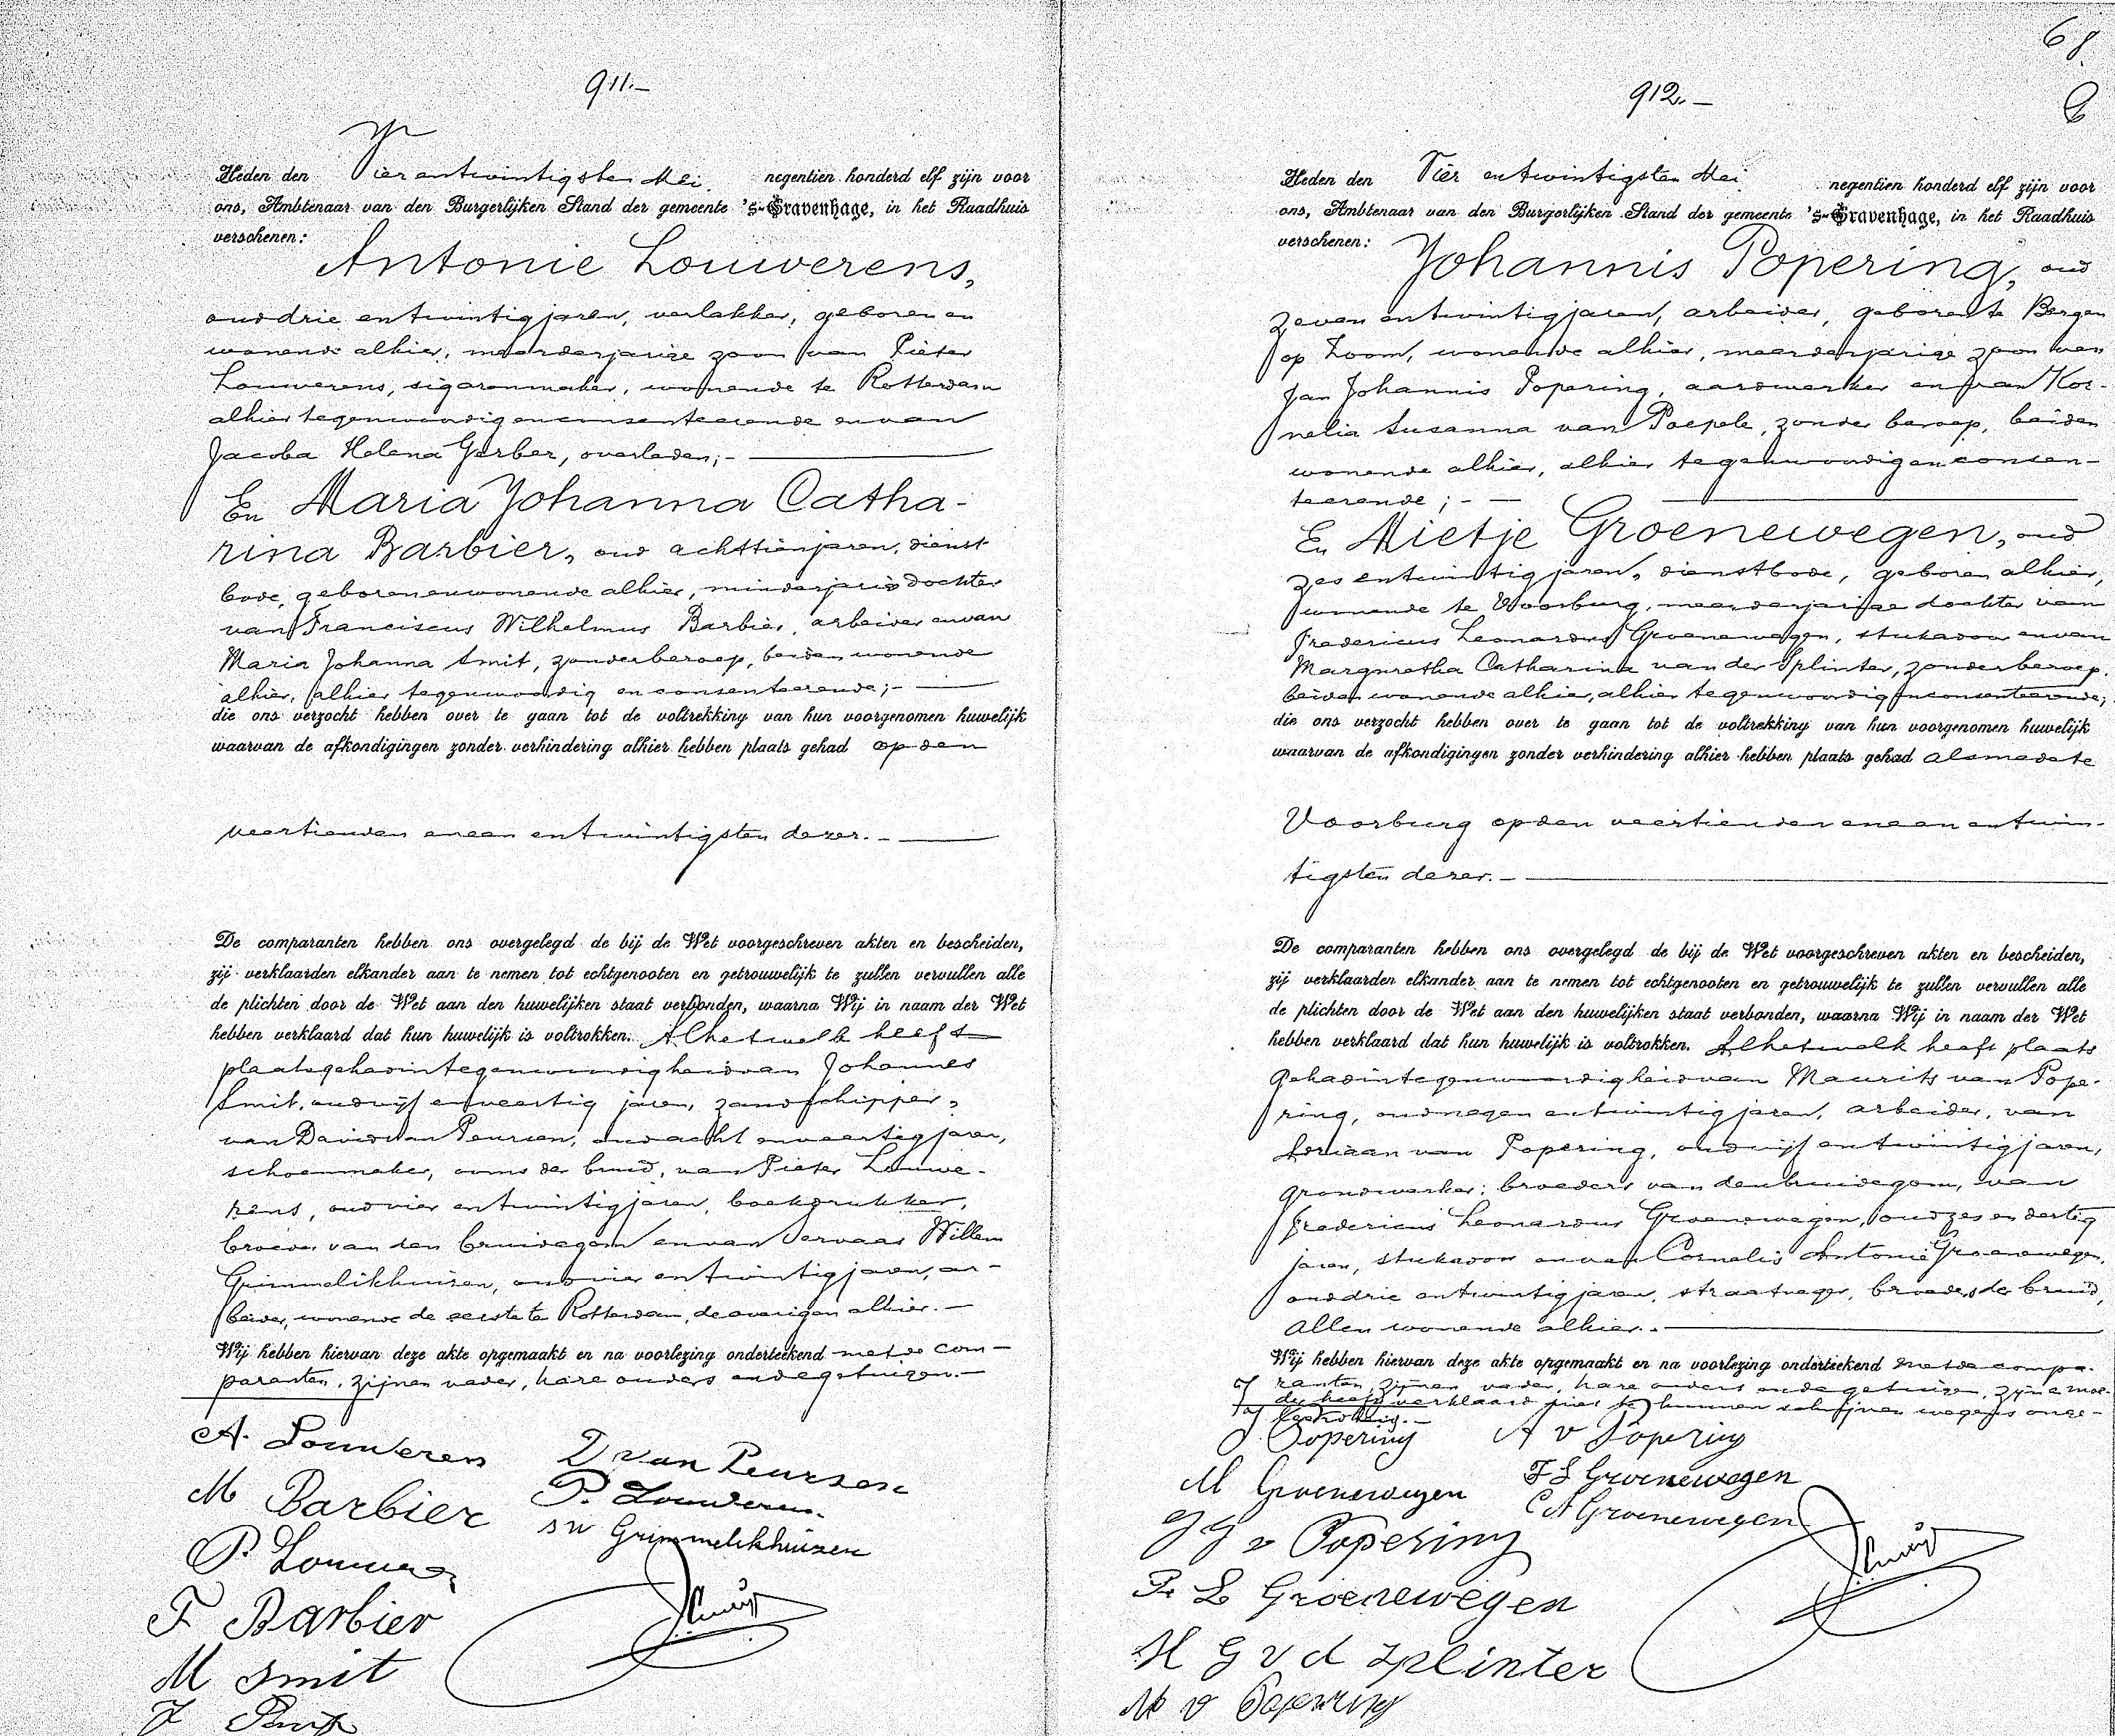 911.-
Heden den Vier en twintigsten Mei. negentien honderd elf zijn voor
ons, Ambtenaar van den Burgerlijken Stand der gemeente 's-Gravenhage, in het Raadhuis
verschenen:
Antonie Louwerens,
oud drie en twintig jaren, verlakker, geboren en
wonende alhier, meerderjarige zoon van Pieter
Louwerens, sigarenmaker, wonende te Rotterdam
alhier tegenwoordig en consenteerende en van
Jacoba Helena Gerber, overleden;-
En Maria Johanna Catha-
rina Barbier, oud achttien jaren, dienst-
bode, geboren en wonende alhier, minderjarige dochter
van Franciscus Wilhelmus Barbier, arbeider en van
Maria Johanna Smit, zonder beroep, beiden wonende
alhier, alhier tegenwoordig en consenteerende;-
die ons verzocht hebben over te gaan tot de voltrekking van hun voorgenomen huwelijk
waarvan de afkondigingen zonder verhindering alhier hebben plaats gehad op den
veertienden en een en twintigsten dezer.-
De comparanten hebben ons overgelegd de bij de Wet voorgeschreven akten en bescheiden,
zij verklaarden elkander aan te nemen tot echtgenooten en getrouwelijk te zullen vervullen alle
de plichten door de Wet aan den huwelijken staat verbonden, waarna Wij in naam der Wet
hebben verklaard dat hun huwelijk is voltrokken. Alhetwelk heeft
plaats gehad in tegenwoordigheid van Johannes
Smit, oud vijf en veertig jaren, zandschipper,
van David van Peursen, oud acht en veertig jaren,
schoenmaker, ooms der bruid, van Pieter Louwe-
rens, oud vier en twintig jaren, boekdrukker,
broeder van den bruidegom en van Servaas Willem
Grimmelikhuizen, oud vier en twintig jaren, ar-
beider, wonende de eerste te Rotterdam, de overigen alhier.-
Wij hebben hiervan deze akte opgemaakt en na voorlezing onderteekend met de com-
paranten, zijnen vader, hare ouders en de getuigen.-
A. Louwerens
D van Peursen
M Barbier
P. Louwerens
S W Grimmelikhuizen
P. Louwerens
F Barbier
M Smit
J Smit
68
912.-
Heden den Vier en twintigsten Mei negentien honderd elf zijn voor
ons, Ambtenaar van den Burgerlijken Stand der gemeente 's-Gravenhage, in het Raadhuis
verschenen:
Johannis Popering, oud
zeven en twintig jaren, arbeider, geboren te Bergen
op Zoom, wonende alhier, meerderjarige zoon van
Jan Johannis Popering, aardwerker en van Kor-
nelia Susanna van Poepele, zonder beroep, beiden
wonende alhier, alhier tegenwoordig en consen-
teerende;-
En Mietje Groenewegen, oud
zes en twintig jaren, dienstbode, geboren alhier,
wonende te Voorburg, meerderjarige dochter van
Fredericus Leonardus Groenewegen, stukadoor en van
Margaretha Catharina van der Splinter, zonder beroep,
beiden wonende alhier, alhier tegenwoordig en consenteerende;
die ons verzocht hebben over te gaan tot de voltrekking van hun voorgenomen huwelijk
waarvan de afkondigingen zonder verhindering alhier hebben plaats gehad alsmede te
Voorburg op den veertienden en een en twin-
tigsten dezer.-
De comparanten hebben ons overgelegd de bij de Wet voorgeschreven akten en bescheiden,
zij verklaarden elkander aan te nemen tot echtgenooten en getrouwelijk te zullen vervullen alle
de plichten door de Wet aan den huwelijken staat verbonden, waarna Wij in naam der Wet
hebben verklaard dat hun huwelijk is voltrokken. Alhetwelk heeft plaats
gehad in tegenwoordigheid van Maurits van Pope-
ring, oud negen en twintig jaren, arbeider, van
Adriaan van Popering, oud vijf en twintig jaren,
grondwerker; broeders van den bruidegom, van
Fredericus Leonardus Groenewegen, oud zes en dertig
jaren, stukadoor en van Cornelis Antonie Groenewegen,
oud drie en twintig jaren, straatveger, broeders der bruid,
allen wonende alhier.-
Wij hebben hiervan deze akte opgemaakt en na voorlezing onderteekend met de compa-
ranten, zijnen vader, hare ouders en de getuigen, zijne moe-
der heeft verklaard niet te kunnen schrijven wegens onge-
J Popering
A v Popering
M Groenewegen
F L Groenewegen
C A Groenewegen
J J v Popering
F. L Groenewegen
M G v d Splinter
M v Popering